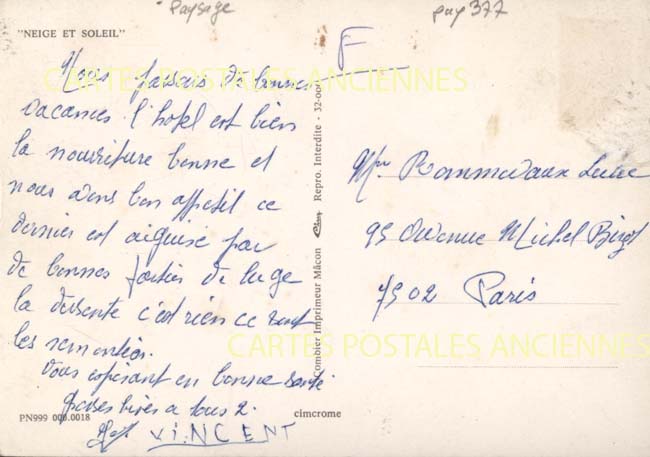 Paysage
pay 377
"NEIGE ET SOLEIL"
F
Nous faisons de bonnes
vacances l'hotel est bien
la nourriture bonne et
nous avons bon appétit ce
dernier est aiguisé par
de bonnes parties de luge
la descente c'est rien ce sont
les remontées.
Vous espérant en bonne santé
Grosses bises a tous 2.
VINCENT
CARTES POSTALES ANCIENNES
Combier Imprimeur Mâcon Repro. Interdite - 32-00
Mme Rommevaux
95 Avenue Michel Bizot
7502 Paris
CARTES POSTALES ANCIENNES
PN999 000.0018
cimcrome